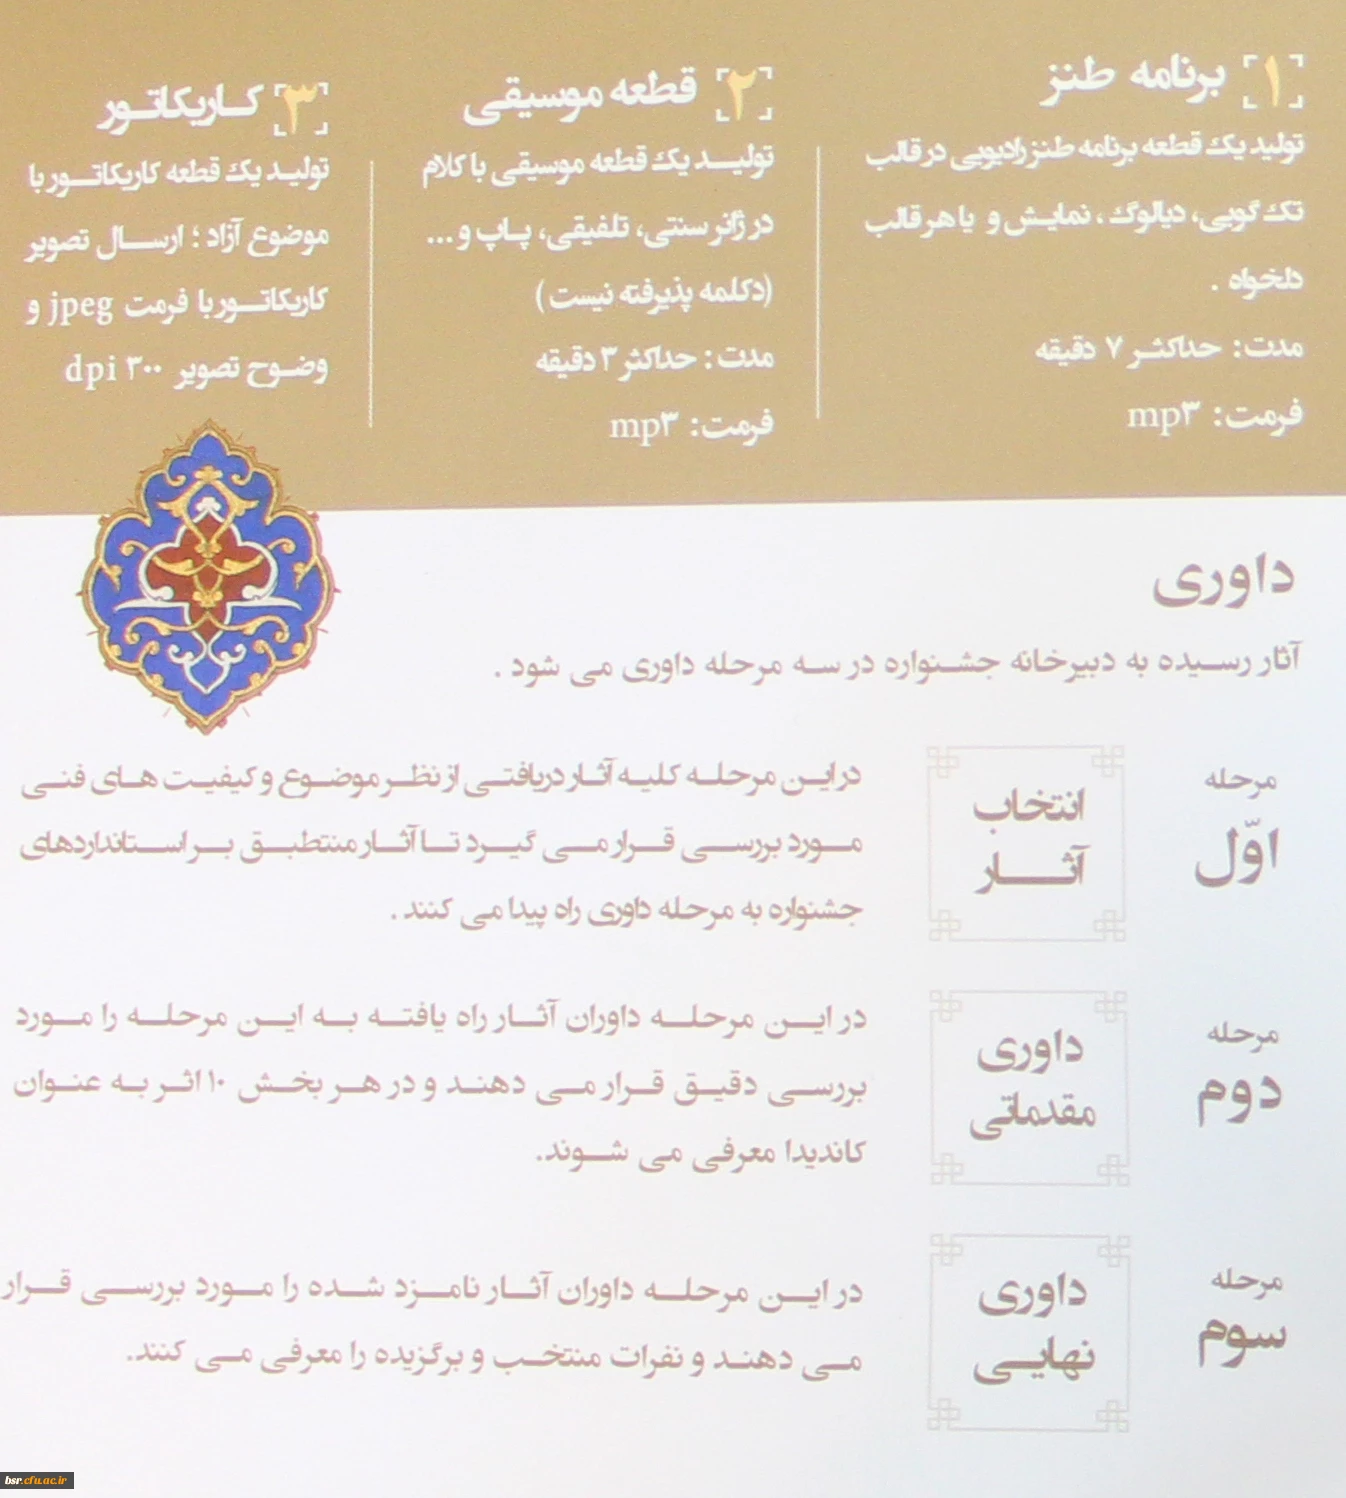 ۱ برنامه طنز
تولید یک قطعه برنامه طنز رادیویی در قالب
تک گویی، دیالوگ، نمایش و یا هر قالب
دلخواه .
مدت: حداکثر ۷ دقیقه
فرمت: mp۳
۲ قطعه موسیقی
تولید یک قطعه موسیقی با کلام
در ژانر سنتی، تلفیقی، پاپ و ...
(دکلمه پذیرفته نیست)
مدت: حداکثر ۳ دقیقه
فرمت: mp۳
۳ کاریکاتور
تولید یک قطعه کاریکاتور با
موضوع آزاد ؛ ارسال تصویر
کاریکاتور با فرمت jpeg و
وضوح تصویر ۳۰۰ dpi
داوری
آثار رسیده به دبیرخانه جشنواره در سه مرحله داوری می شود .
مرحله
اوّل
انتخاب
آثار
در این مرحله کلیه آثار دریافتی از نظر موضوع و کیفیت های فنی
مورد بررسی قرار می گیرد تا آثار منتطبق بر استانداردهای
جشنواره به مرحله داوری راه پیدا می کنند .
مرحله
دوم
داوری
مقدماتی
در این مرحله داوران آثار راه یافته به این مرحله را مورد
بررسی دقیق قرار می دهند و در هر بخش ۱۰ اثر به عنوان
کاندیدا معرفی می شوند.
مرحله
سوم
داوری
نهایی
در این مرحله داوران آثار نامزد شده را مورد بررسی قرار
می دهند و نفرات منتخب و برگزیده را معرفی می کنند.
bsr.cfu.ac.ir